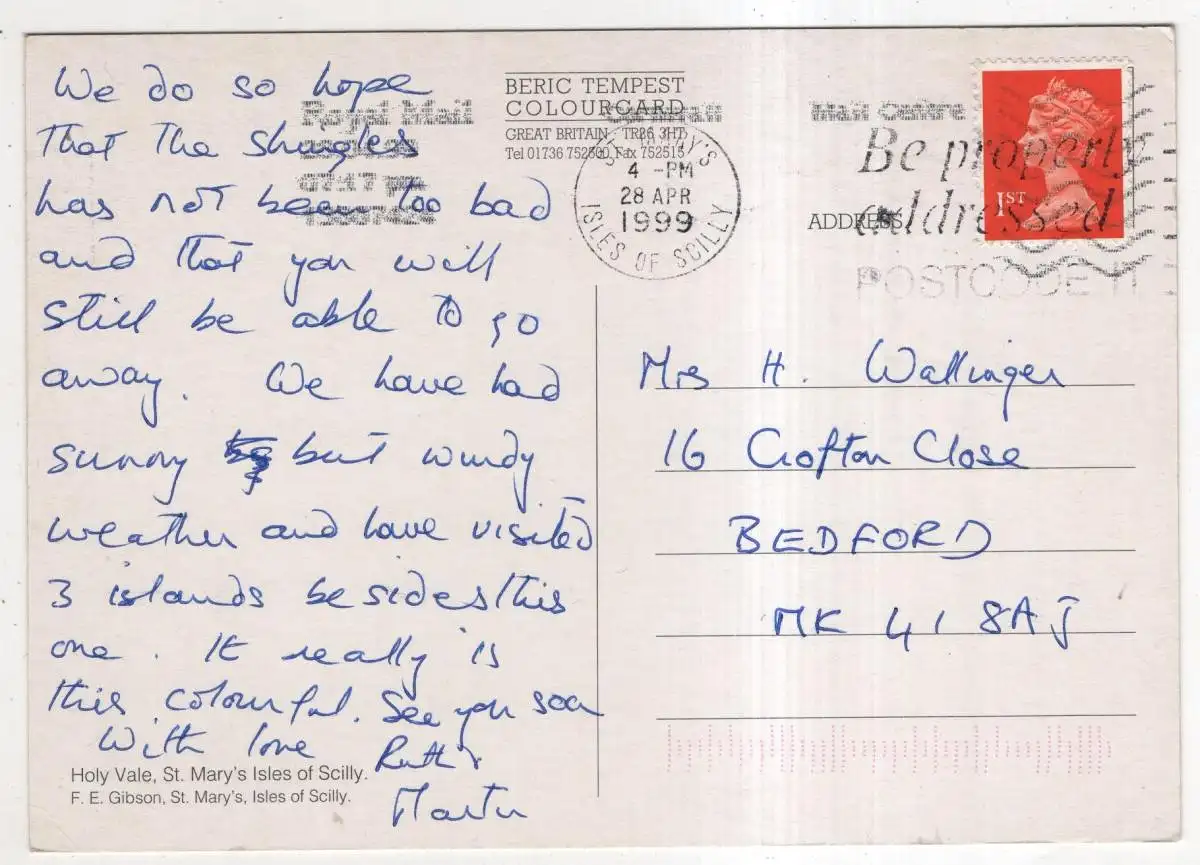 We do so hope
that the shingles
has not been too bad
and that you will
still be able to go
away. We have had
sunny but windy
weather and have visited
3 islands besides this
one. It really is
this colourful. See you soon
With love Ruth &
Martin
Holy Vale, St. Mary's Isles of Scilly.
F. E. Gibson, St. Mary's, Isles of Scilly.
BERIC TEMPEST
COLOURCARD
GREAT BRITAIN TR26 3HT
Tel 01736 752500 Fax 752515
Royal Mail
Mail Centre
ST. MARY'S
4 -PM
28 APR
1999
ISLES OF SCILLY
Be properly
addressed
POSTCODE IT
ADDRESS
1ST
Mrs H. Wallinger
16 Crofton Close
BEDFORD
MK 41 8AJ